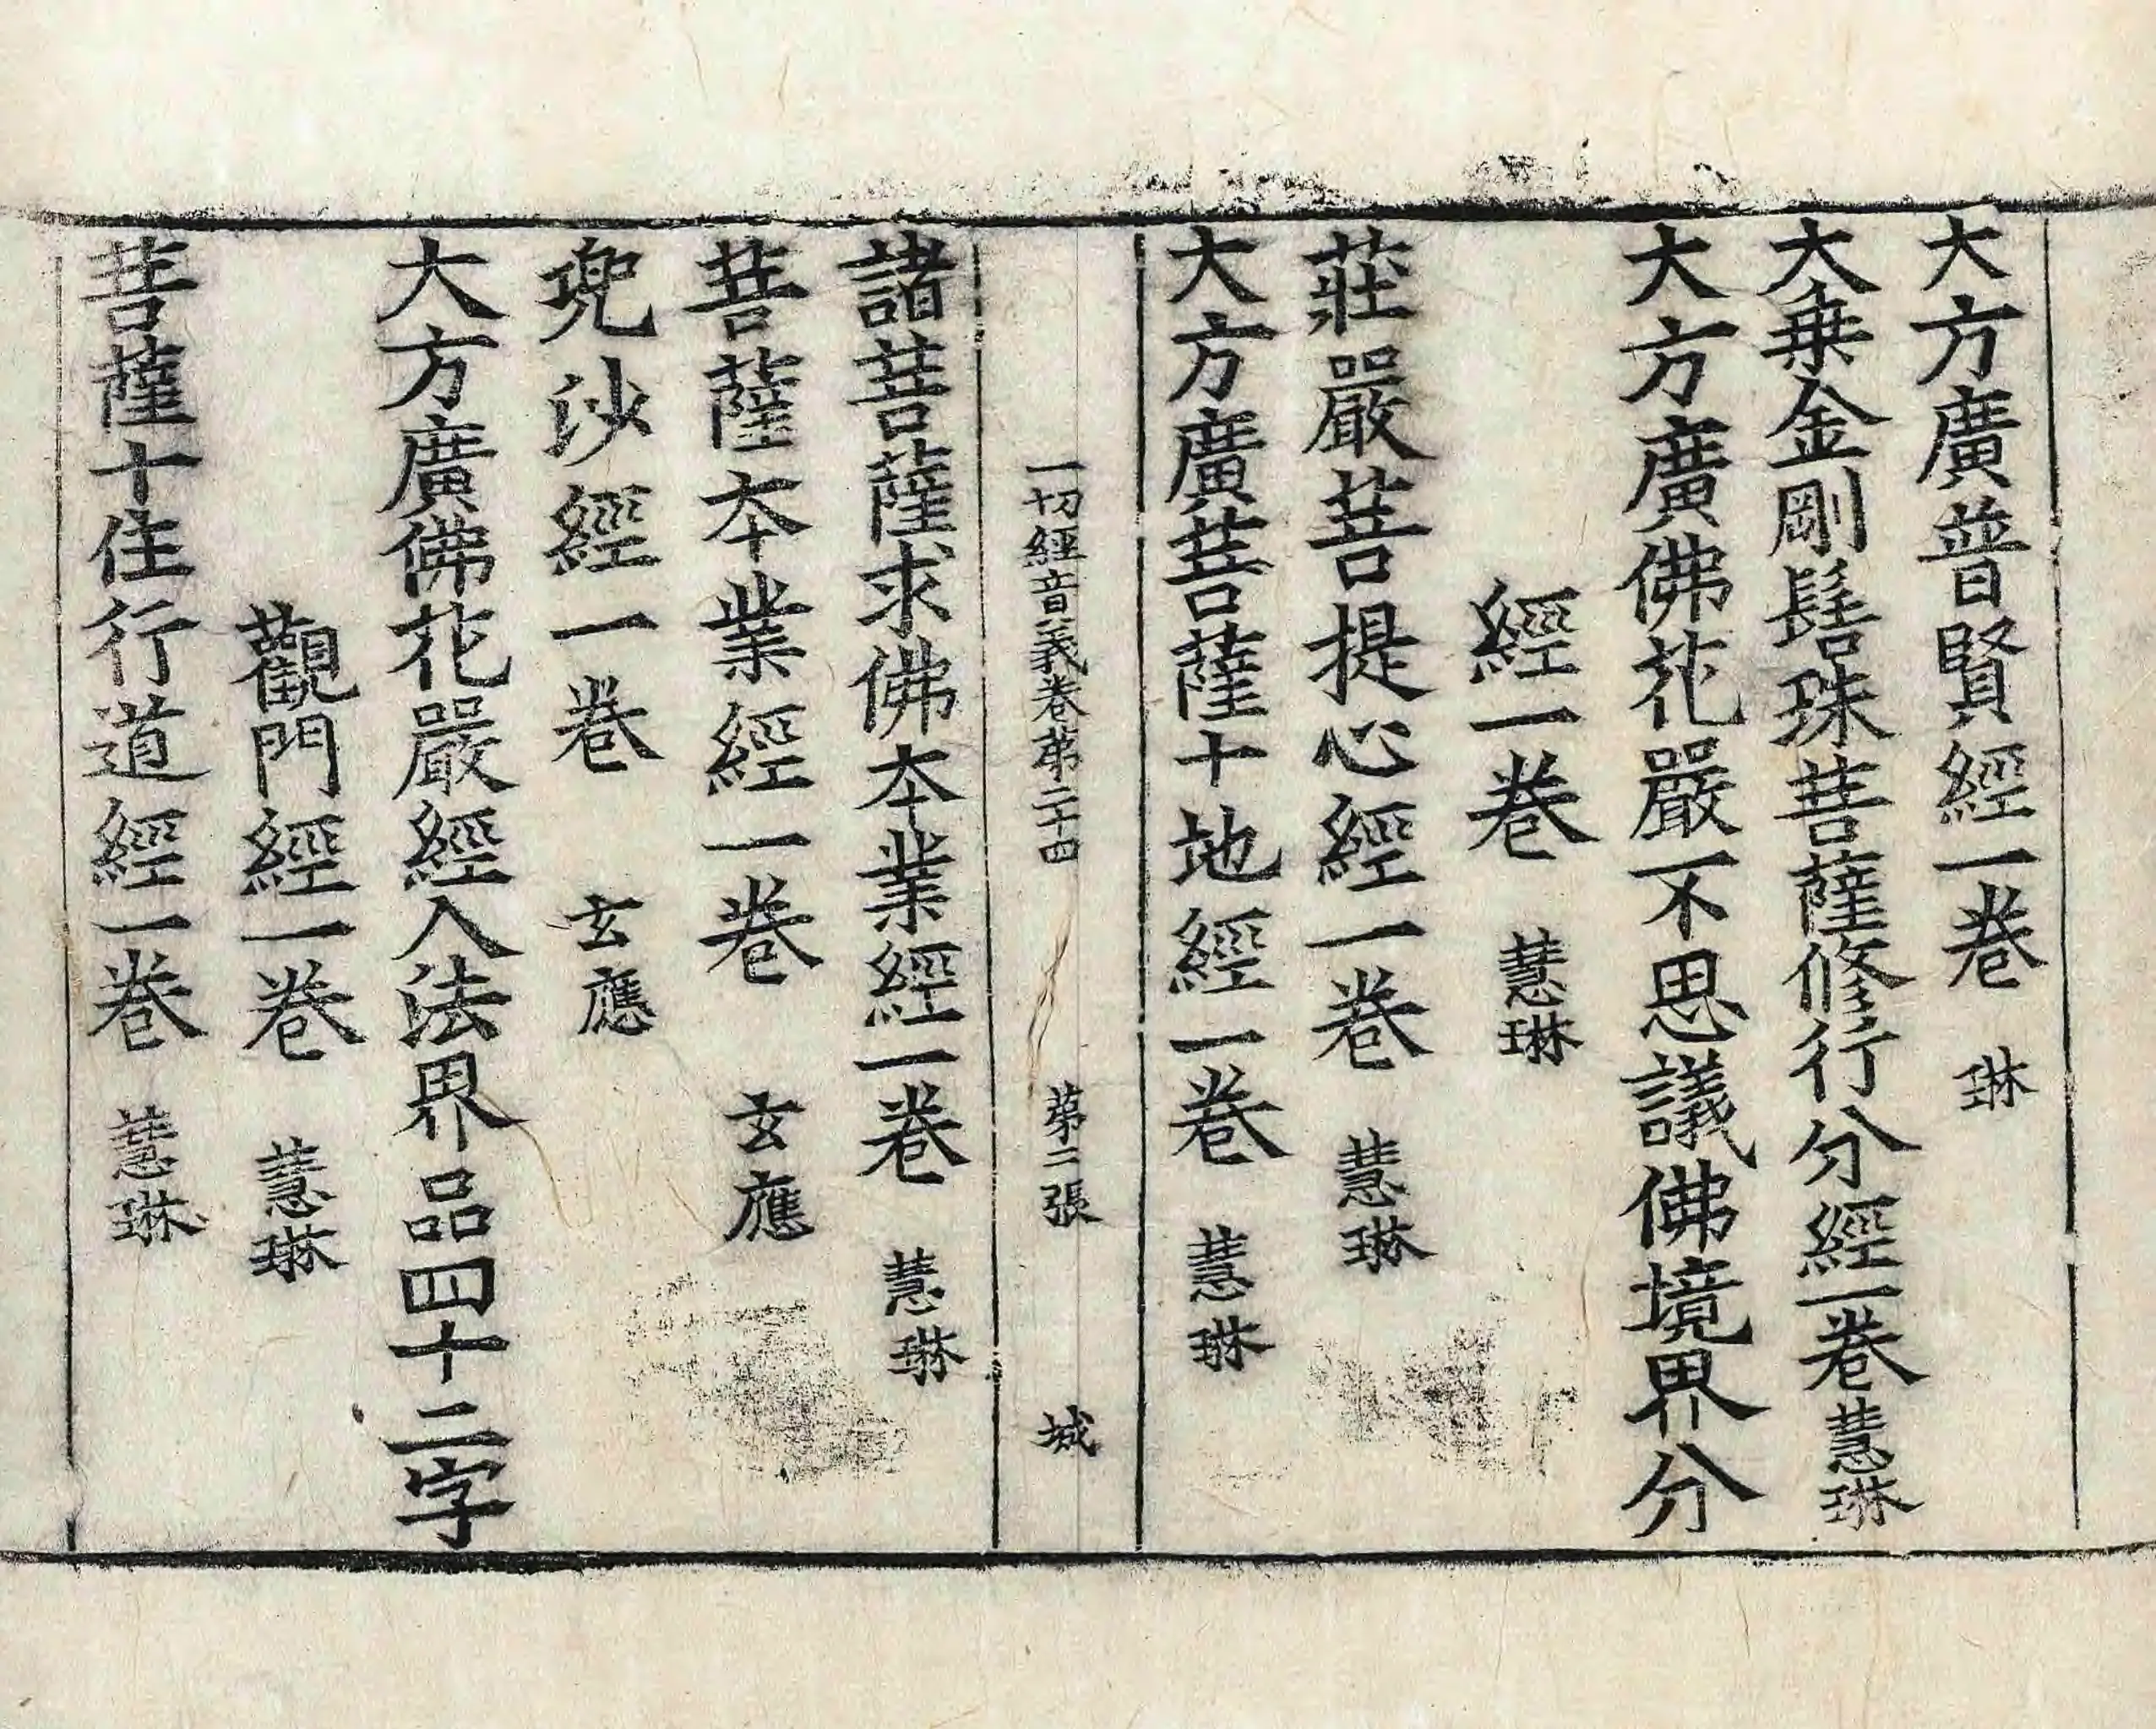 大方廣普賢經一卷 琳
大乗金剛髻珠菩薩修行分經一卷慧琳
大方廣佛花嚴不思議佛境界分
經一卷 慧琳
莊嚴菩提心經一卷 慧琳
大方廣菩薩十地經一卷 慧琳
一切經音義卷苐二十四 苐二張 城
諸菩薩求佛本業經一卷 慧琳
菩薩本業經一卷 玄應
兜沙經一卷 玄應
大方廣佛花嚴經入法界品四十二字
觀門經一卷 慧琳
菩薩十住行道經一卷 慧琳